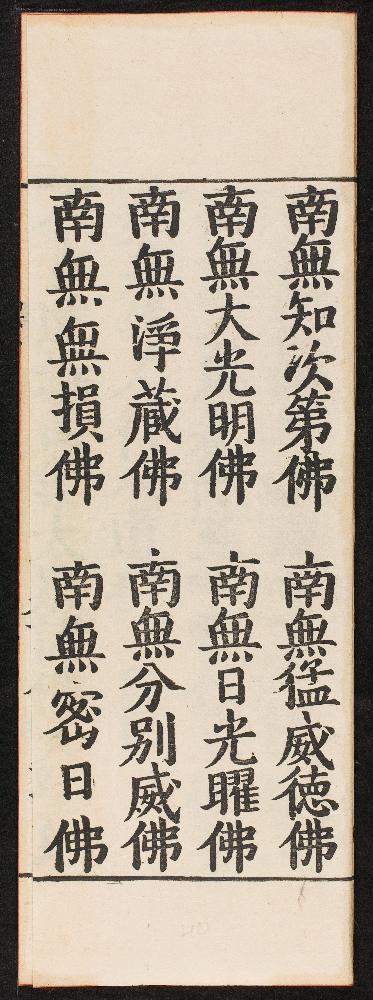 南無知次第佛　南無猛威德佛
南無大光明佛　南無日光曜佛
南無淨藏佛　南無分別威佛
南無無損佛　南無密日佛